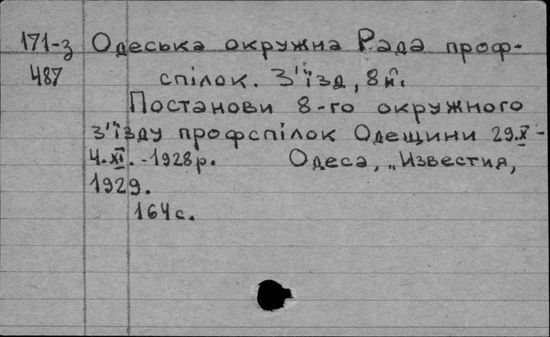 171-з Одеська окружна Рада проф-
487 спілок. З'їзд, 8й.
Постанови 8-го окружного
з'їзду профспілок Одещини 29.X-
4.XI.-1928р. Одеса, „Известия,
1929.
164 с.